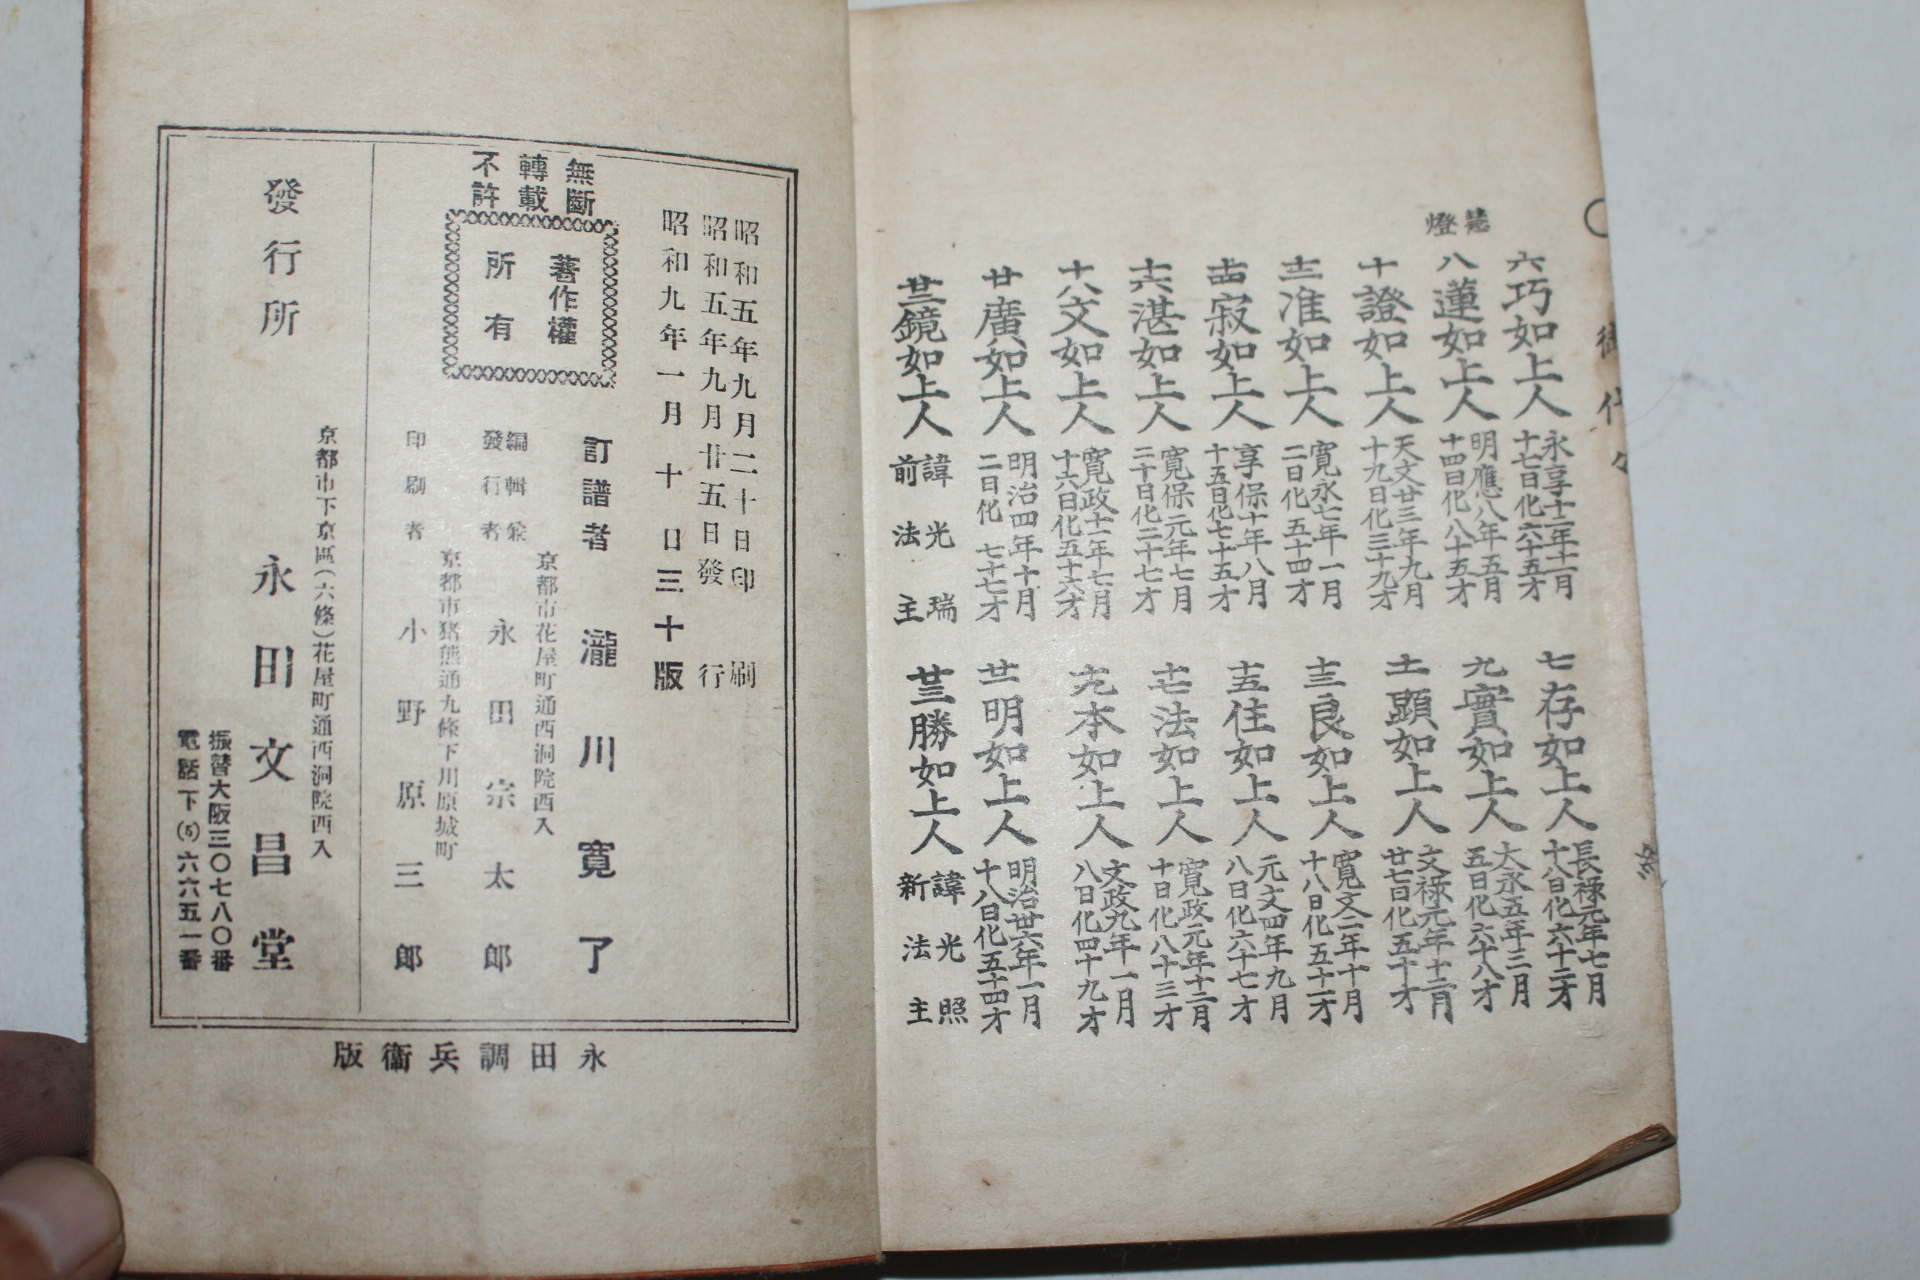 御代々
六巧如上人 永享十二年十一月十七日化六十五才
七存如上人 長祿元年七月十八日化六十二才
慧燈
八蓮如上人 明應八年五月十四日化八十五才
九實如上人 大永五年二月五日化六十八才
十證如上人 天文廿三年九月十九日化三十九才
十一顯如上人 文祿元年十二月廿七日化五十才
十二准如上人 寛永七年十一月二日化五十四才
十三良如上人 寛文二年十月十八日化五十一才
十四寂如上人 享保十年八月十五日化七十五才
十五住如上人 元文四年九月八日化六十七才
十六湛如上人 寛保元年七月二十日化二十七才
十七法如上人 寛政元年十二月十日化八十三才
十八文如上人 寛政十一年七月十六日化五十六才
十九本如上人 文政九年十一月八日化四十九才
廿廣如上人 明治四年十月二日化 七十七才
廿一明如上人 明治卅六年一月十八日化五十四才
廿二鏡如上人 諱光瑞 前法主
廿三勝如上人 諱光照 新法主
昭和五年九月二十日印刷
昭和五年九月廿五日發行
昭和九年一月十日三十版
無斷轉載不許
著作權所有
訂譜者 瀧川寛了
京都市花屋町通西洞院西入
編輯兼發行者 永田宗太郎
京都市猪熊通九條下川原城町
印刷者 小野原三郎
京都市下京區(六條)花屋町通西洞院西入
發行所 永田文昌堂
振替大阪三〇七八〇番
電話下(5)六六五一番
永田調兵衞版